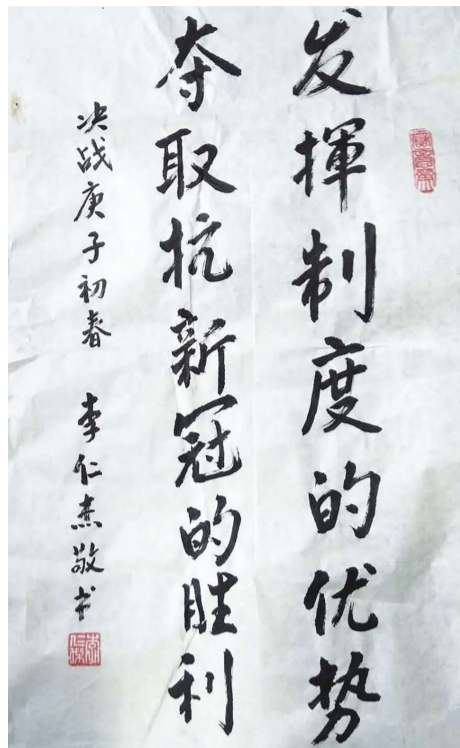 发揮制度的优势
夺取抗新冠的胜利
决战庚子初春 李仁杰敬书